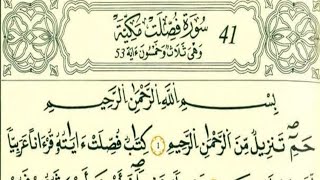 سُورَةُ فُصِّلَتْ مَكِّيَّةٌ
وَهْيَ ثَلَاثٌ وَخَمْسُونَ ءَايَةً 53
41
بِسْمِ اللَّهِ الرَّحْمَٰنِ الرَّحِيمِ
حمٓ تَنزِيلٌ مِّنَ الرَّحْمَٰنِ الرَّحِيمِ ١ كِتَٰبٌ فُصِّلَتْ ءَايَٰتُهُۥ قُرْءَاناً عَرَبِيّاً